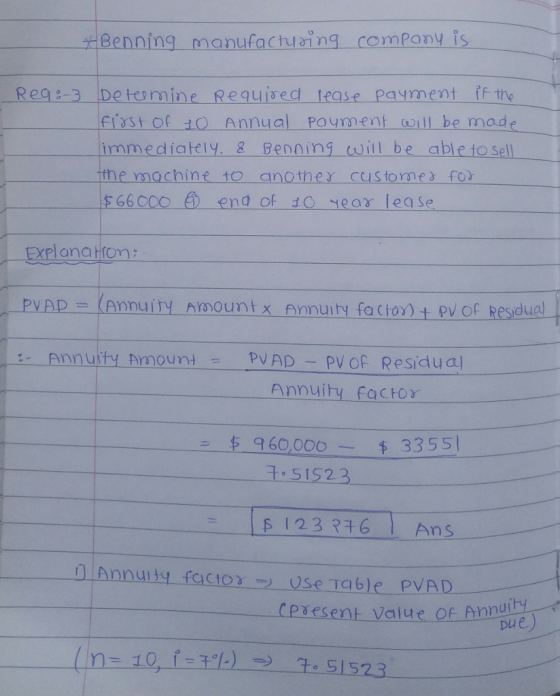 * Benning manufacturing company is
Req:-3 Determine Required lease payment if the
first of 10 Annual Payment will be made
immediately. & Benning will be able to sell
the machine to another customer for
$66000 @ end of 10 year lease
Explanation:-
PVAD = (Annuity Amount x Annuity factor) + PV of Residual
:- Annuity Amount = PVAD - PV of Residual
Annuity factor
= $ 960,000 - $ 33551
7.51523
= $ 123276 Ans
1) Annuity factor => Use Table PVAD
(present value of Annuity
Due)
(n= 10, i = 7%) => 7.51523